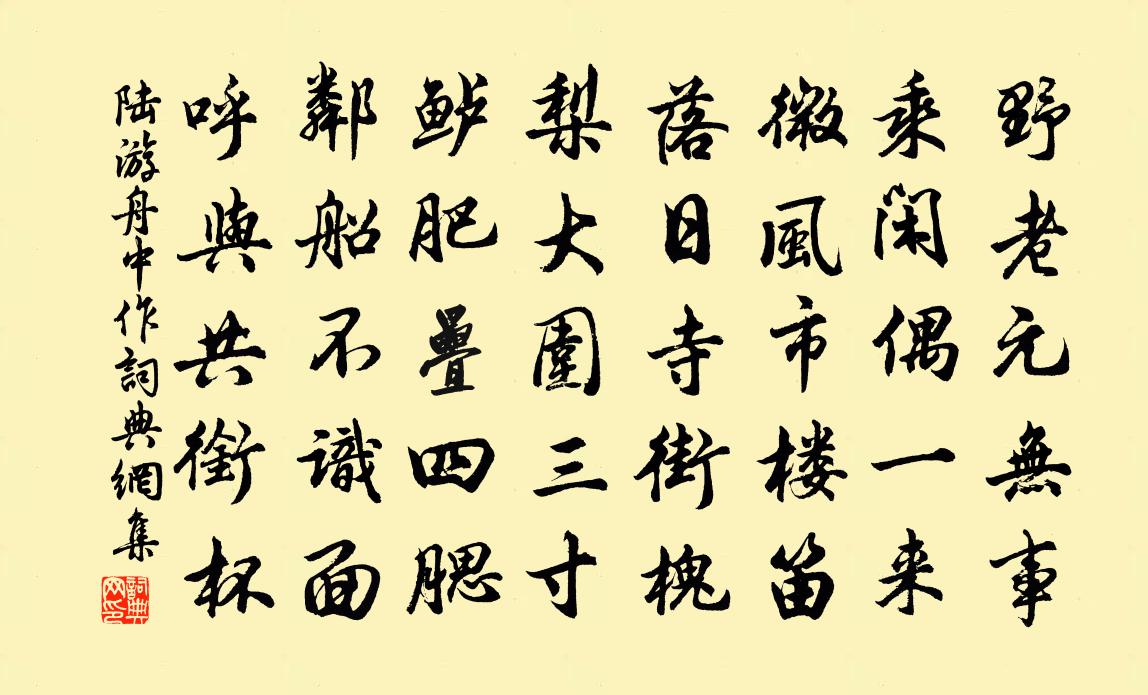 野老元無事
乘闲偶一来
微風市楼笛
落日寺街槐
梨大圍三寸
鲈肥疊四腮
鄰船不識面
呼與共銜杯
陆游舟中作詞典網集
詞典网印